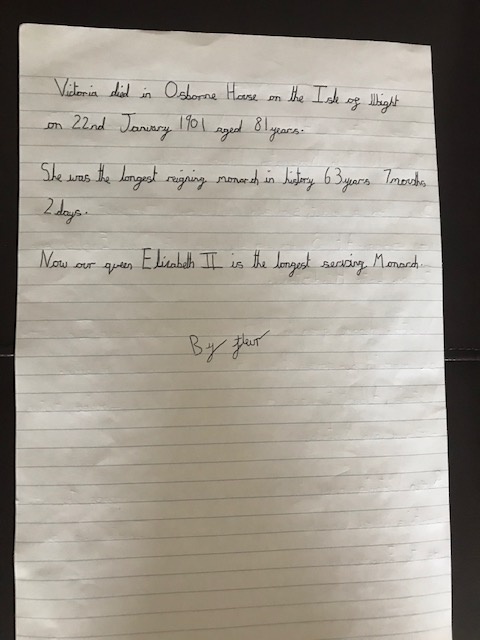 Victoria died in Osborne House on the Isle of Wight
on 22nd January 1901 aged 81 years.
She was the longest reigning monarch in history 63 years 7 months
2 days.
Now our queen Elizabeth II is the longest serving Monarch.
By fleur